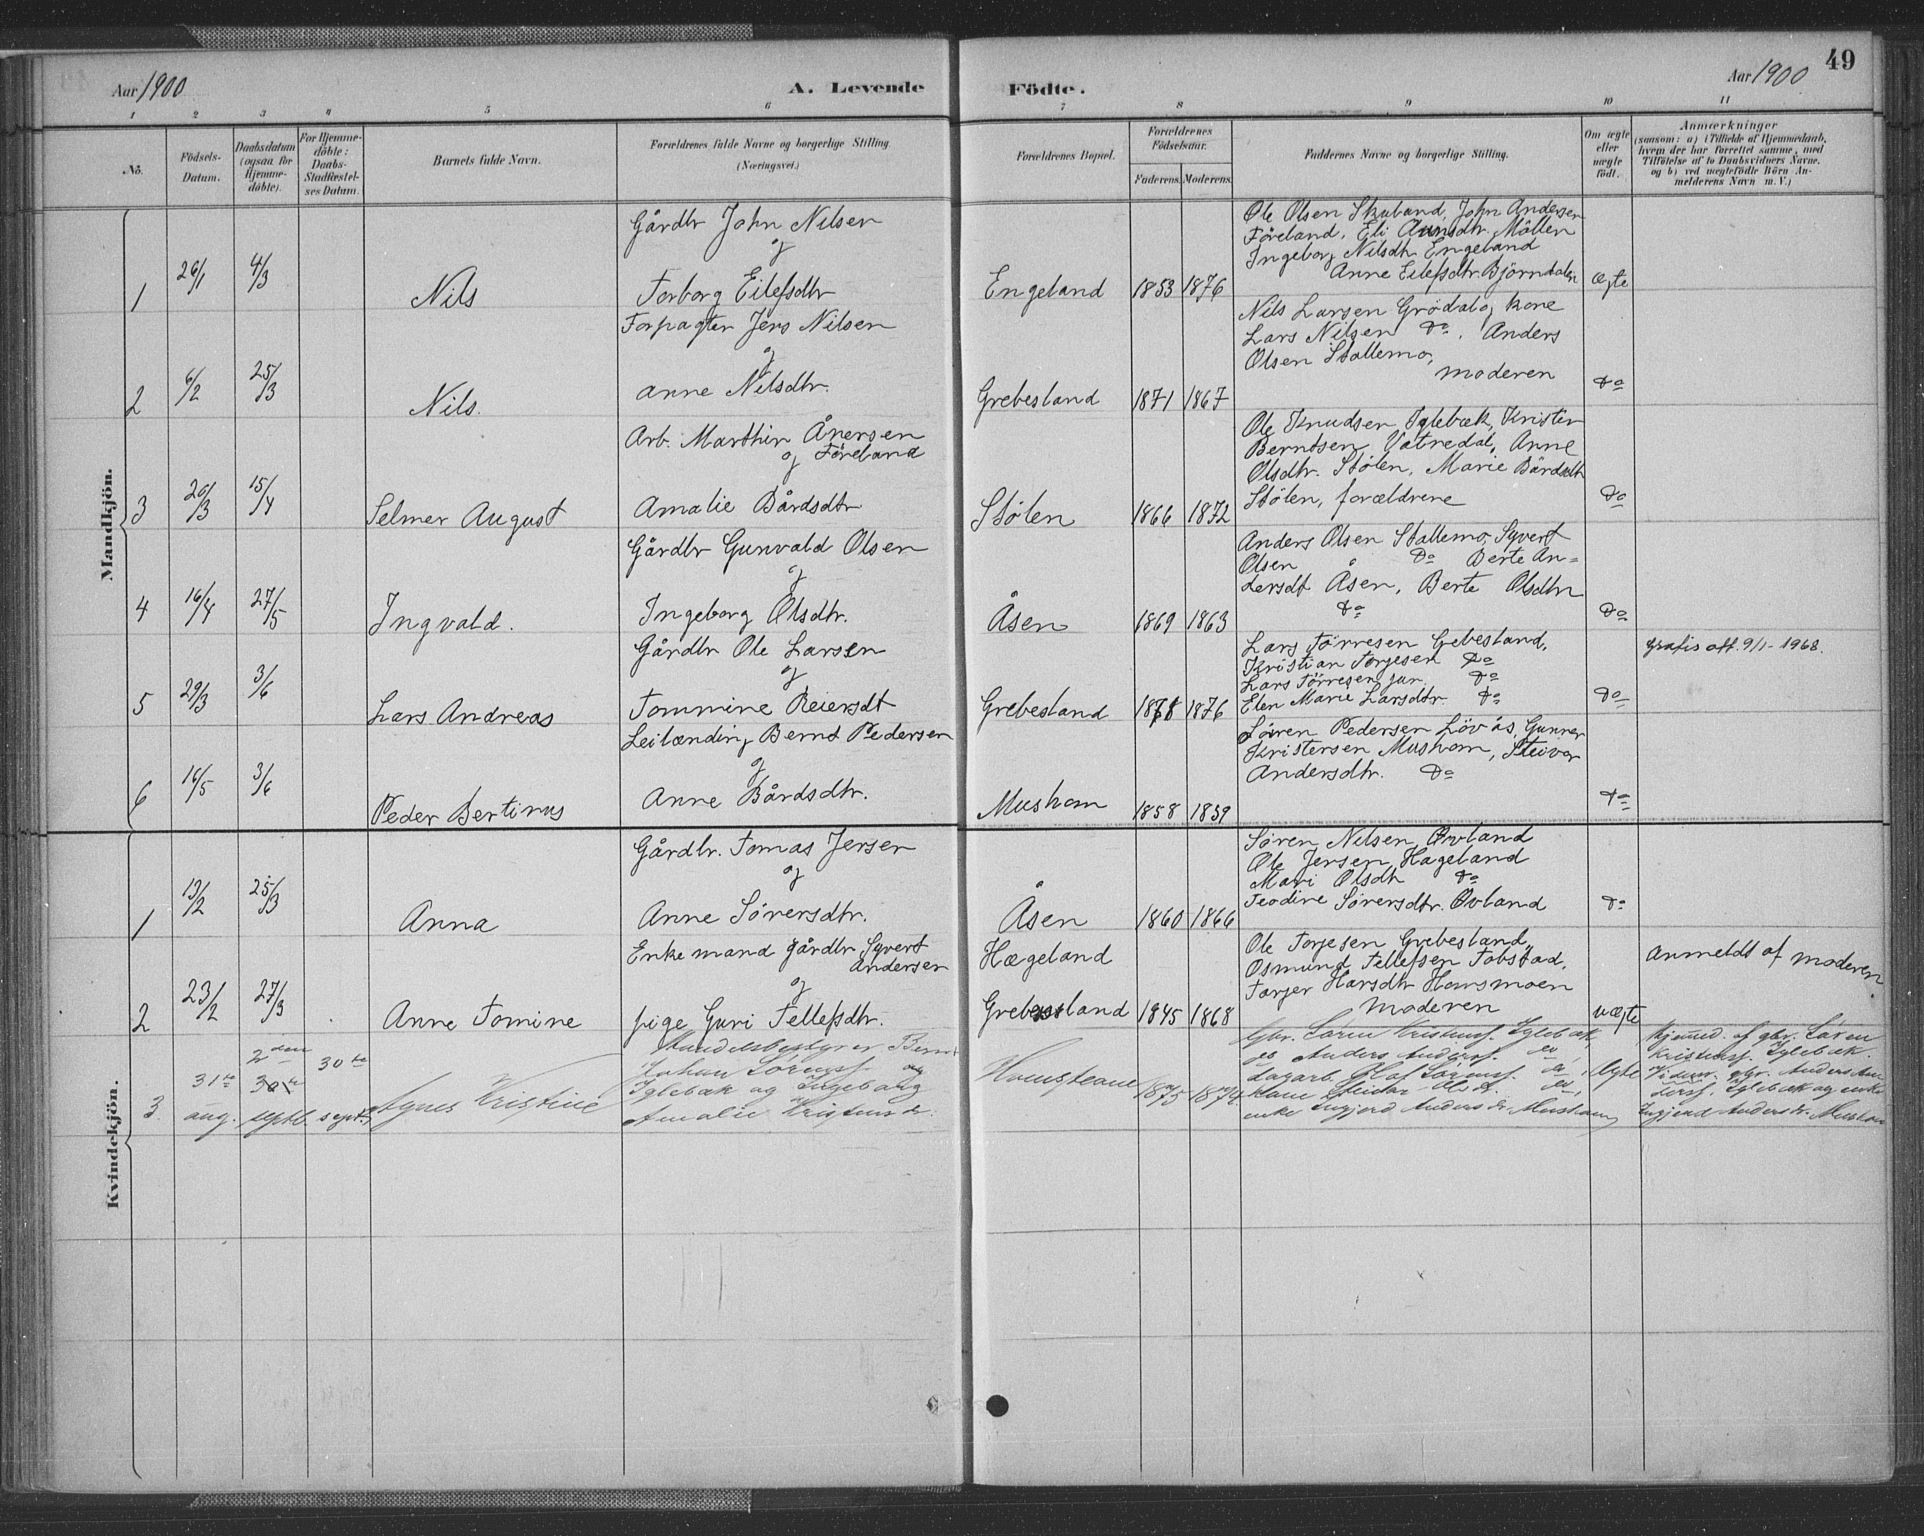 Aar 1900
A. Levende
Födte.
Aar 1900
49
1 2 3 4 5 6 7 8 9 10 11
No.
Födsels-Datum.
Daabsdatum (ogsaa for Hjemmedöbte).
For Hjemmedöbte: Daabs-Stadfæstelses Datum.
Barnets fulde Navn.
Forældrenes fulde Navne og borgerlige Stilling. (Næringsvei.)
Forældrenes Bopæl.
Forældrenes Födselsaar.
Faderens. Moderens.
Faddernes Navne og borgerlige Stilling.
Om ægte eller uægte födt.
Anmærkninger
(saasom: a) i Tilfælde af Hjemmedaab, hvem der har forrettet samme, med Tilföielse af to Daabsvidners Navne, og b) ved uægtefödte Börn Anmelderens Navn m. V.)
Mandkjön.
1 26/1 4/3 Nils
Gårdbr John Nilsen
og
Torborg Eilefsdtr
Engeland 1853 1876
Ole Olsen Skuland, John Andersen
Föreland, Eli Aunsdtr. Möllen
Ingeborg Nilsdtr Engeland
Anne Eilefsdtr Björndalen
ægte
2 6/2 25/3 Nils.
Forpagter Jens Nilsen
og
Anne Nilsdtr.
Grebesland 1871 1867
Nils Larsen Grödal og kone
Lars Nilsen Do. Anders
Olsen Stallemo,
moderen
Do
3 20/3 15/4 Selmer August
Arb. Marthin Ånersen
og Föreland
Amalie Bårdsdtr
Stölen 1866 1872
Ole Knudsen Iglebæk, Kristen
Berntsen Vatnedal, Anne
Olsdtr. Stölen, Marie Bårdsdtr
Stölen, forældrene
Do
4 16/4 27/5 Ingvald.
Gårdbr Gunvald Olsen
og
Ingeborg Olsdtr.
Åsen 1869 1863
Anders Olsen Stallemo, Syvert
Olsen Do Berte An=
dersdt Åsen, Berte Olsdtr
Do
Do
5 29/3 3/6 Lars Andreas
Gårdbr Ole Larsen
og
Tommine Reiersdt
Grebesland 1878 1876
Lars Törresen Gebesland,
Kristian Torjesen Do
Lars Törresen jun. Do
Elen Marie Larsdtr. Do
Do
gratis att. 9/1-1968.
6 16/5 3/6 Peder Bertinus
Leilænding Bernt Pedersen
og
Anne Bårdsdtr.
Mushom 1858 1859
Sören Pedersen Lövås, Gunner
Kristensen Mushom,
Andersdtr. Do
Do
Kvindekjön.
1 13/2 25/3 Anna
Gårdbr. Tomas Jensen
og
Anne Sörensdtr.
Åsen 1860 1866
Sören Nilsen Övland
Ole Jensen Hageland
Mari Olsdtr Do
Teodine Sörensdtr. Övland
Do
2 23/2 27/3 Anne Tomine
Enkemand gårdbr Syvert
Andersen
og
pige Guri Tellefsdtr.
Hægeland
Grebesland 1845 1868
Ole Torjesen Grebesland,
Osmund Tellefsen Tobstad,
Torjer Hansdtr Honsmoen
Moderen
uægte
Anmeldt af moderen
3 31te aug. 2den septbr. 30te sept.
Agnes Kristine
Handelsbestyrer Bernt
Johan Sörensf. og
Iglebæk og Ingeborg
Amalie Kristensdr.
Homsteane 1875 1874
Gbr. Sören Kristensf. Iglebæk,
Anders Andersf. do,
Dagarb. Olaf Sörensf. do,
enke Ingjerd Andersdr. Mushom
Ægte
Hjemmed. af gbr. Sören
Kristensf. Iglebæk.
Vidner: gbr. Anders An-
dersf. Iglebæk og enke
Ingjerd Andersdr. Mushom